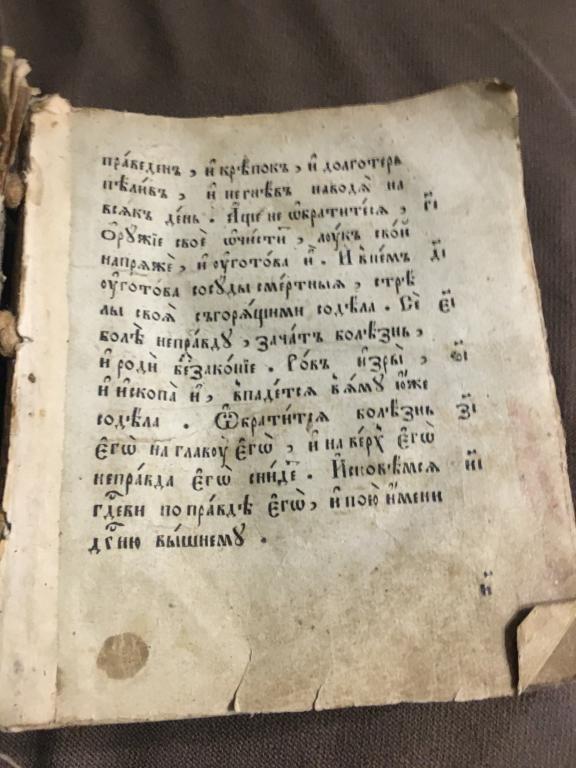 пра́веденъ , и҆ крѣ́покъ , и҆ долготерь
пѣли́въ , и҆ не гнѣ́въ наводѧ̀ на
всѧ́къ де́нь . А҆́ще не ѡ҆братите́сѧ , г҃і
Ѻ҆рꙋ́жїе своѐ ѡ҆чи́сти , лоу́къ сво́й
напрѧжѐ , и҆ оу҆гото́ва и҆̀ . И҆ в̾не́мъ д҃і
оу҆гото́ва сосꙋ́ды сме́ртныѧ , стрѣ́
лы своѧ̀ съгорѧ́щими содѣ́ла . Сѐ є҃і
болѣ̀ непра́вдꙋ , зача́тъ болѣ́знь ,
и҆ родѝ беззако́нїе . Ро́въ и҆зры̀ , ѕ҃і
и҆ и҆скопа̀ и҆̀ , в̾паде́тсѧ в̾ ѧ́мꙋ ю҆́же
содѣ́ла . Ѡ҆брати́тсѧ болѣ́знь з҃і
є҆гѡ̀ на главоу̀ є҆гѡ̀ , и҆ на ве́рхъ є҆гѡ̀
непра́вда є҆гѡ̀ сни́де . И҆сповѣ́мсѧ и҃і
гдⷭ҇еви по пра́вдѣ є҆гѡ̀ , и҆ пою̀ и҆́мени
гдⷭ҇ню вы́шнемꙋ .
и҃